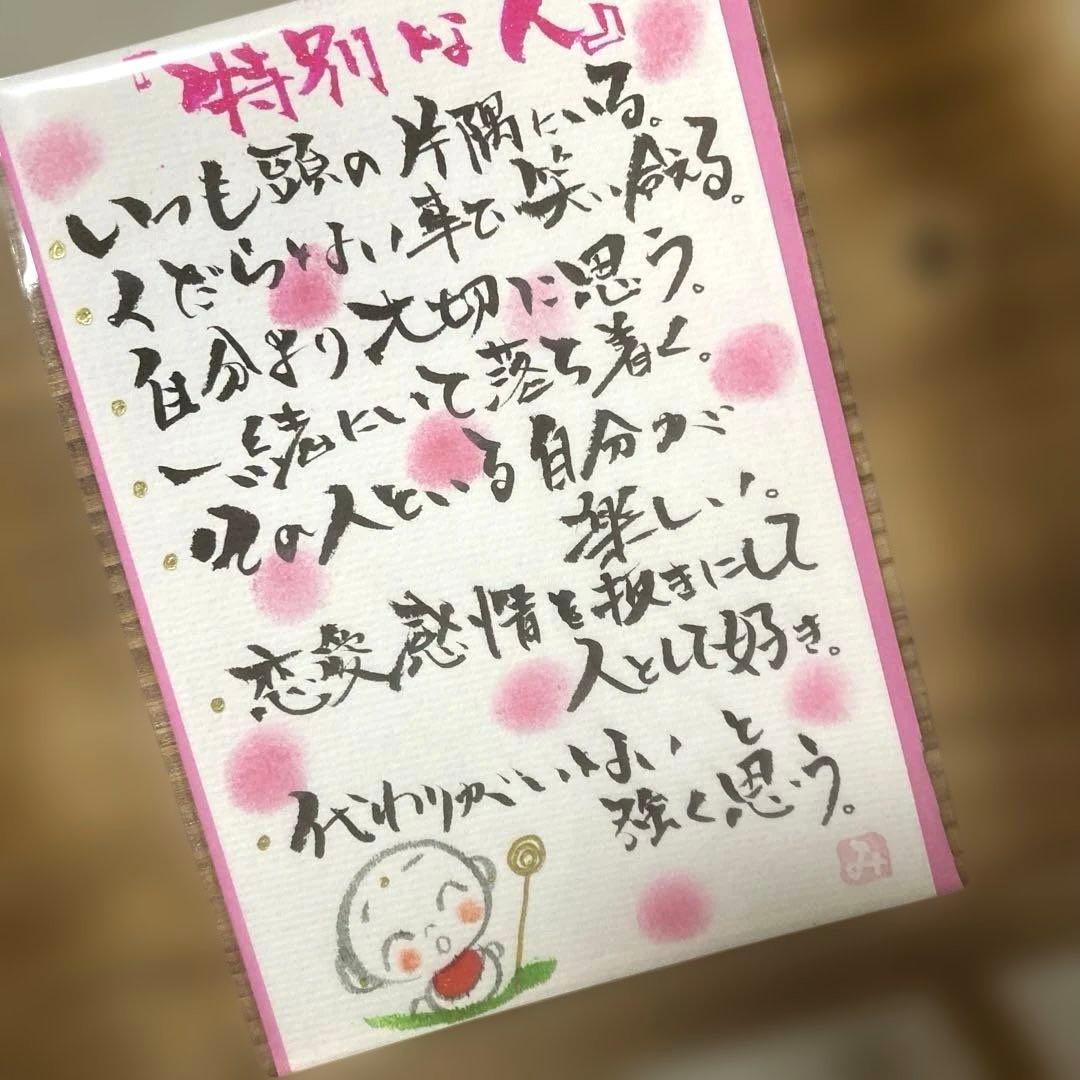 『特別な人』
いつも頭の片隅にいる。
くだらない事で笑い合える。
自分より大切に思う。
一緒にいて落ち着く。
その人といる自分が
楽しい。
恋愛感情を抜きにして
人として好き。
代わりがいないと
強く思う。
み